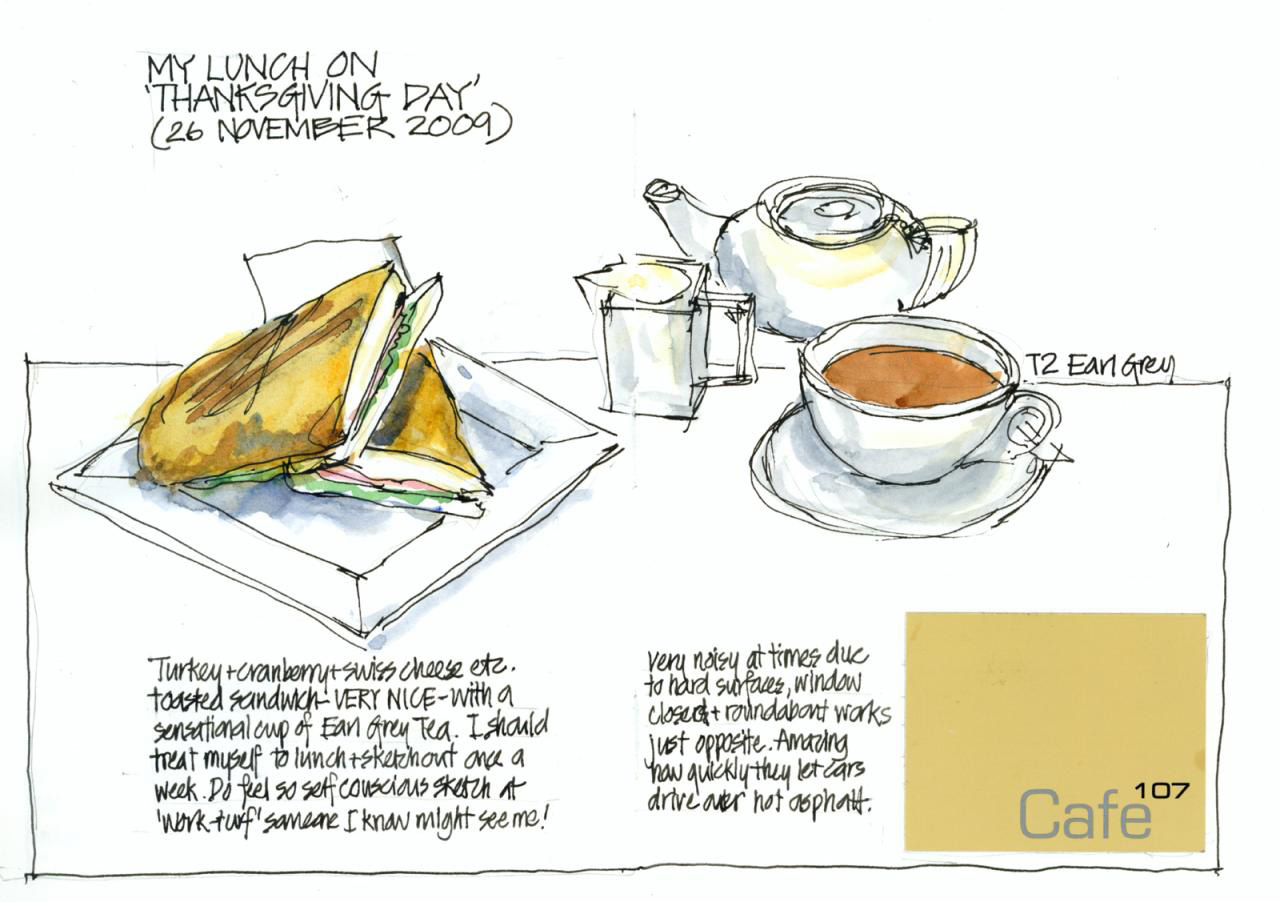 MY LUNCH ON
'THANKSGIVING DAY'
(26 NOVEMBER 2009)
T2 Earl Grey
Turkey + cranberry + swiss cheese etc.
toasted sandwich - VERY NICE - with a
sensational cup of Earl Grey Tea. I should
treat myself to lunch + sketchout once a
week. Do feel so self conscious sketch at
'work turf' someone I know might see me!
very noisy at times due
to hard surfaces, window
closed + roundabout works
just opposite. Amazing
how quickly they let cars
drive over hot asphalt.
Cafe 107